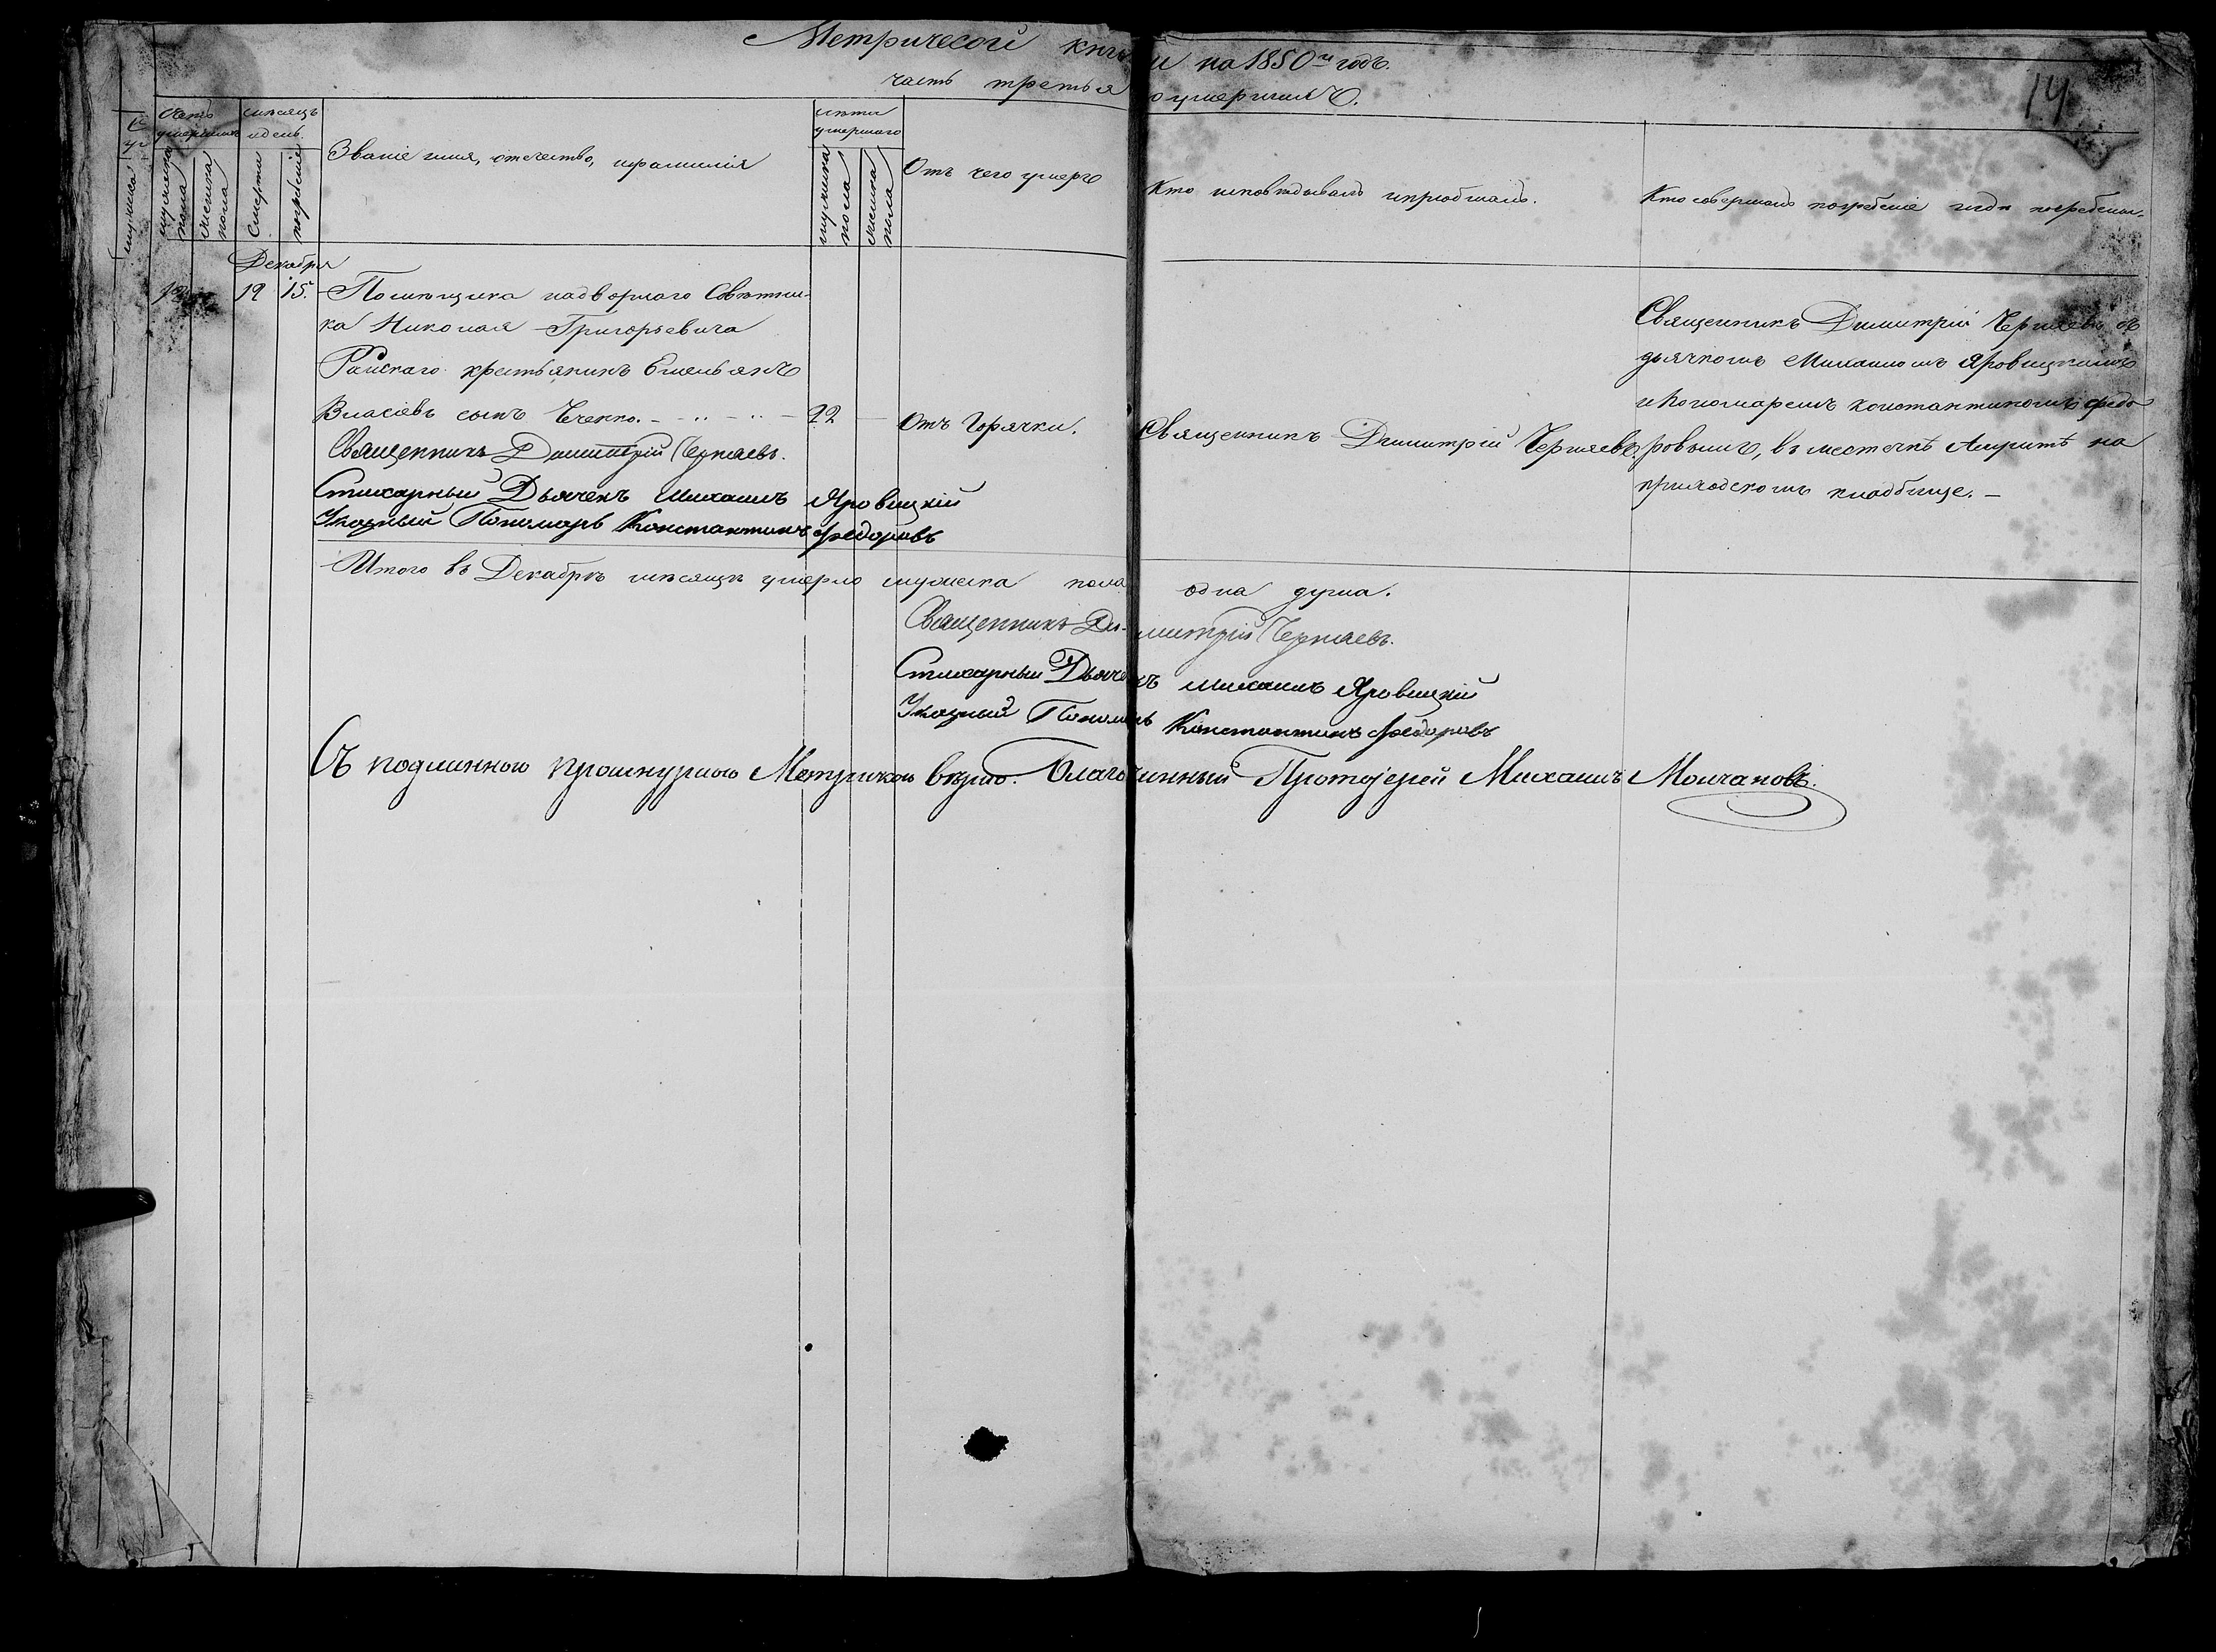 Метрической книги на 1850й годъ.
часть третья о умершихъ.
14
Счетъ умершихъ
мужеска пола
женска пола
мѣсяцъ и день
Смерти
погребенія
Званіе имя, отечество, и фамилія
лѣта умершаго
мужеска пола
женска пола
Отъ чего умеръ
Кто исповѣдывалъ и пріобщалъ.
Кто совершалъ погребеніе и гдѣ погребены.
Декабря
12 15.
Помѣщика надворнаго Совѣтни-
ка Николая Григорьевича
Райскаго крестьянинъ Емельянъ
Власіевъ сынъ Чечко. 22
Отъ Горячки.
Священникъ Димитрій Черняевъ.
Священникъ Димитрій Черняевъ съ
дьячкомъ Михаиломъ Яровицкимъ
и пономаремъ константиномъ федо-
ровымъ, въ местечкѣ на
приходскомъ кладбище. –
Священникъ Димитрій Черняевъ.
Стихарный Дьячекъ Михаилъ Яровицкій
Указный Пономарь Константинъ Федоровъ
Итого въ Декабрѣ мѣсяцѣ умерло мужеска пола одна душа.
Священникъ Димитрій Черняевъ.
Стихарный Дьячекъ Михаилъ Яровицкій
Указный Пономарь Константинъ Федоровъ
Съ подлинною прошнурною Метрикою вѣрно: Благочинный Протоіерей Михаилъ Молчановъ.